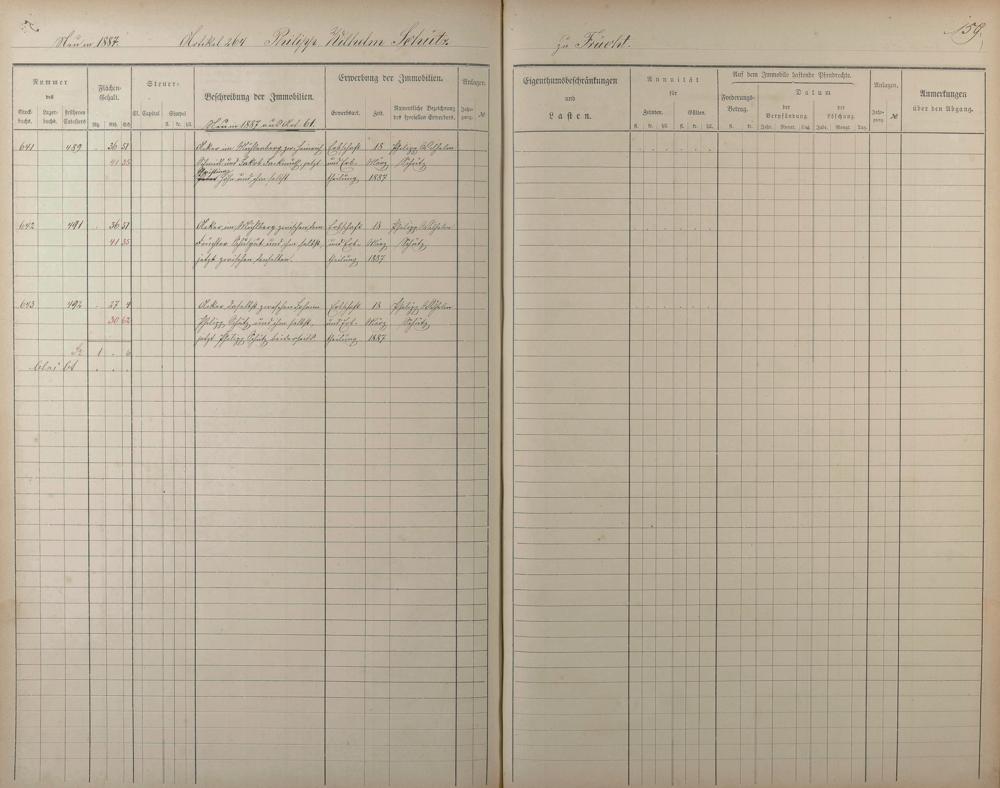 Neu in 1887. Artikel 264 Philipp Wilhelm Schütz
zu Frücht.
159.
Nummer
des
Stock-
buchs.
Lager-
buchs.
früheren
Catasters
Flächen-
Gehalt.
Mg. Rth. Sch.
Steuer-
Kl. Capital
Simpel
fl. kr. hl.
Beschreibung der Immobilien.
Neu in 1887 aus Art. 61.
Erwerbung der Immobilien.
Erwerbsart.
Zeit.
Namentliche Bezeichnung
des speciellen Erwerbers.
Anlagen.
Jahr-
gang.
№
Eigenthumsbeschränkungen
und
Lasten.
Annuität
für
Zehnten.
Gülten.
fl. kr. hl. fl. kr. hl.
Auf dem Immobile haftende Pfandrechte.
Forderungs-
Betrag.
fl. kr.
Datum
der
Verpfändung.
der
Löschung.
Jahr. Monat. Tag. Jahr. Monat. Tag.
Anlagen.
Jahr-
gang.
№
Anmerkungen
über den Abgang.
641 489 36 51 Acker im Mühlenberg zw. Heinrich Erbschaft 18 Philipp Wilhelm
41 35 Schmidt und Jakob jetzt und Erb- März Schütz
Christian
Höhn und ihm selbst theilung 1887
642 491 36 51 Acker im Mühlberg zwischen dem Erbschaft 18 Philipp Wilhelm
41 35 Früchter Schulgut und ihm selbst, und Erb- März Schütz
jetzt zwischen denselben. theilung 1887
643 492 27 4 Acker daselbst zwischen Johann Erbschaft 18 Philipp Wilhelm
30 62 Philipp Schütz und ihm selbst, und Erb- März Schütz
jetzt Philipp Schütz beiderseits. theilung 1887
1 . 6